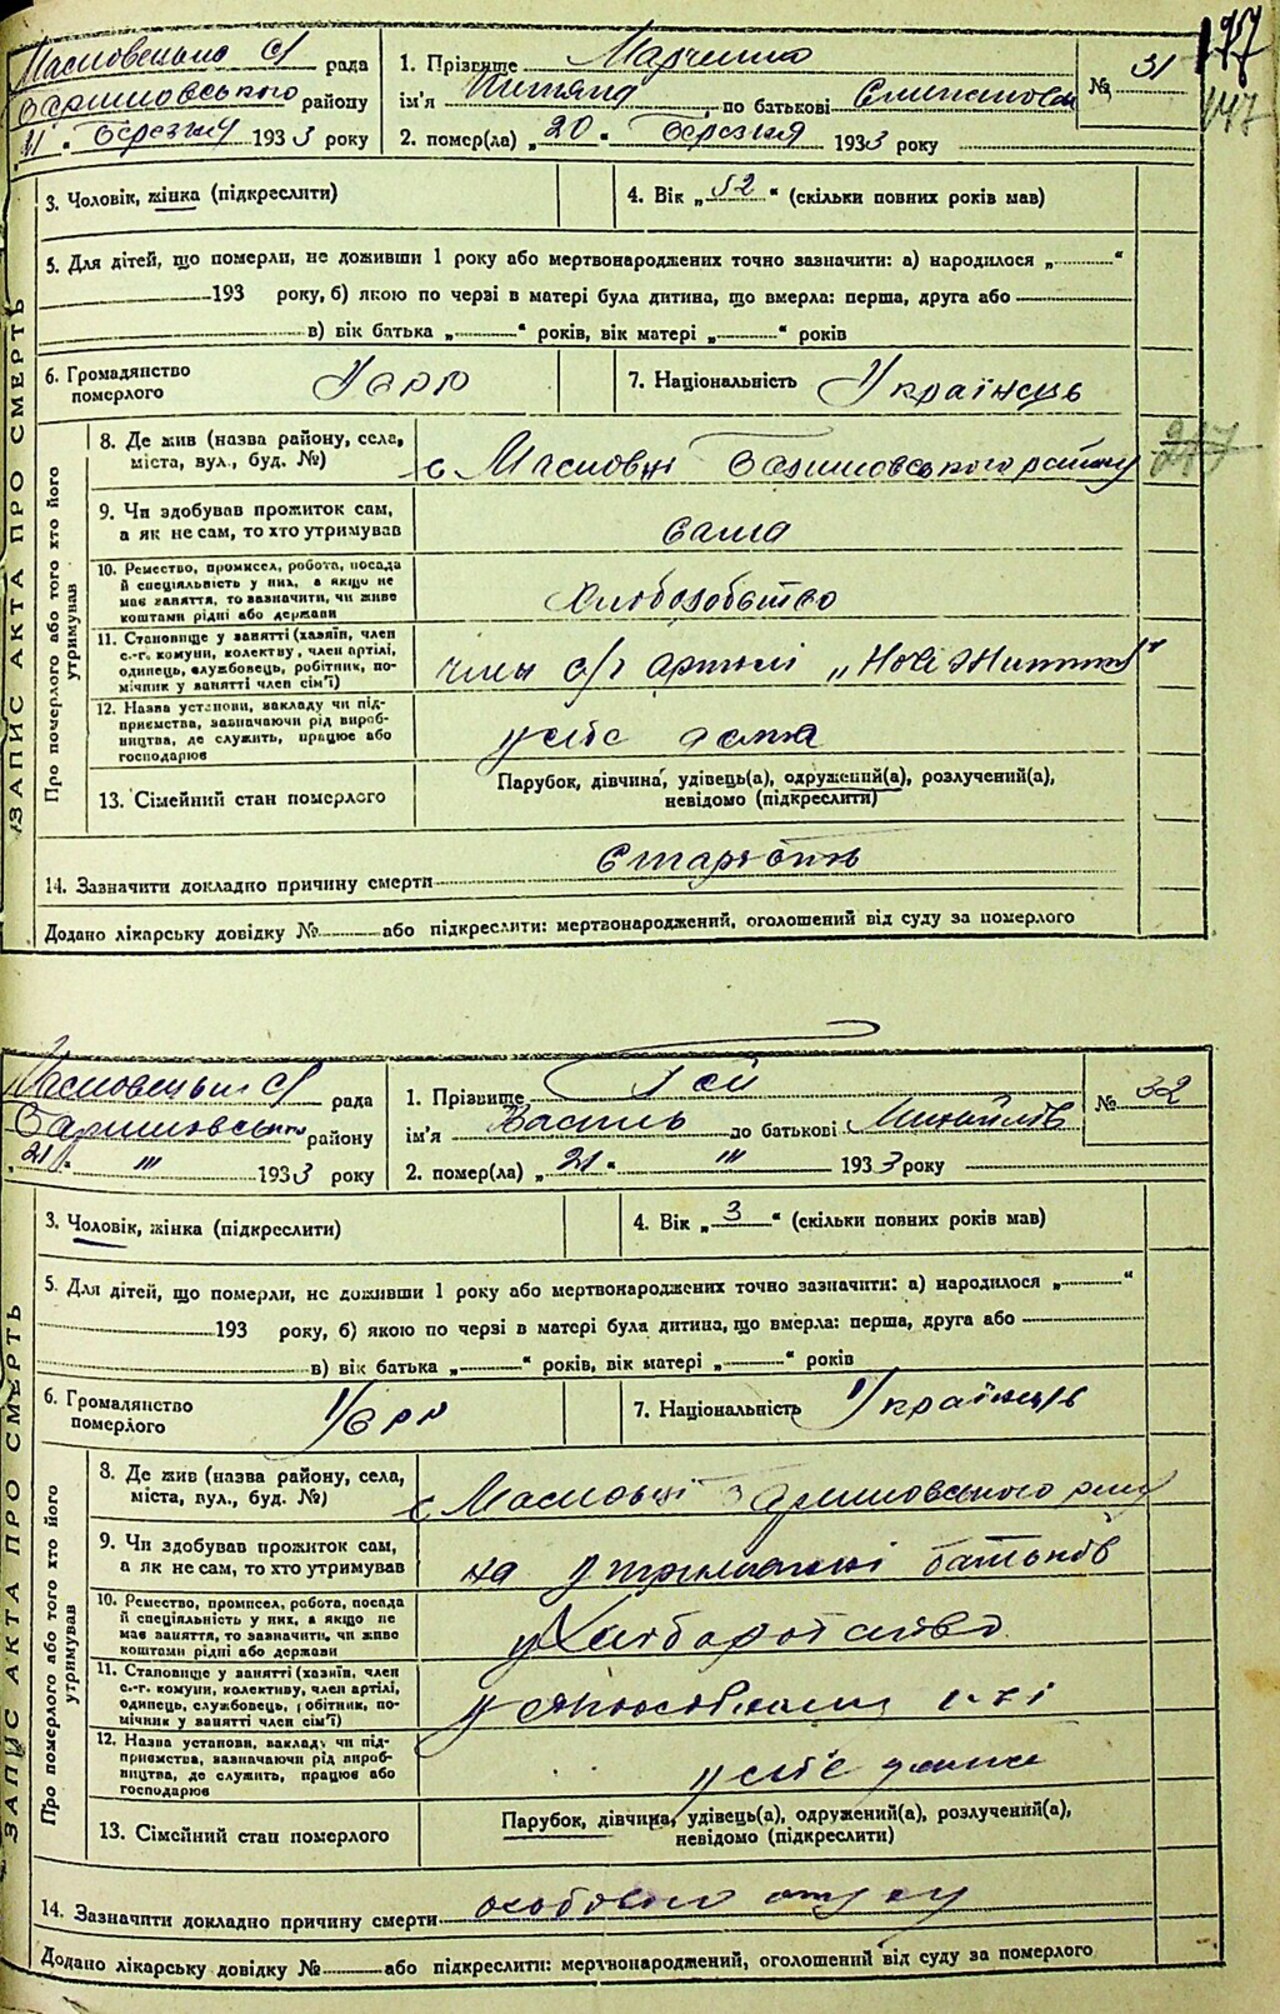 177
147
рада
району
Березня 1933 року
1. Прізвище Марченко
ім'я по батькові
№ 31
2. помер(ла) „20" Березня 1933 року
3. Чоловік, жінка (підкреслити)
4. Вік „52" (скільки повних років мав)
5. Для дітей, що померли, не доживши 1 року або мертвонароджених точно зазначити: а) народилося „ "
193 року, б) якою по черзі в матері була дитина, що вмерла: перша, друга або
в) вік батька „ " років, вік матері „ " років
6. Громадянство померлого Усрр
7. Національність Українець
217
ЗАПИС АКТА ПРО СМЕРТЬ
Про померлого або того хто його утримував
8. Де жив (назва району, села,
міста, вул., буд. №)
с Масковці району
9. Чи здобував прожиток сам,
а як не сам, то хто утримував
сама
10. Ремество, промисел, робота, посада
й спеціяльність у них, а якщо не
має заняття, то зазначити, чи живе
коштами рідні або держави
Хліборобство
11. Становище у занятті (хазяїн, член
с.-г. комуни, колектву, член артілі,
одинець, службовець, робітник, по-
мічник у занятті член сім'ї)
член с/г артілі „Нове Життя"
12. Назва установи, закладу чи під-
приємства, зазначаючи рід вироб-
ництва, де служить, працює або
господарює
у себе дома
13. Сімейний стан померлого
Парубок, дівчина, удівець(а), одружений(а), розлучений(а),
невідомо (підкреслити)
14. Зазначити докладно причину смерти Старість
Додано лікарську довідку № або підкреслити: мертвонароджений, оголошений від суду за померлого
рада
району
21 ııı 1933 року
1. Прізвище Гей
ім'я Василь по батькові Михайлів
№ 32
2. помер(ла) „21" ııı 1933 року
3. Чоловік, жінка (підкреслити)
4. Вік „3" (скільки повних років мав)
5. Для дітей, що померли, не доживши 1 року або мертвонароджених точно зазначити: а) народилося „ "
193 року, б) якою по черзі в матері була дитина, що вмерла: перша, друга або
в) вік батька „ " років, вік матері „ " років
6. Громадянство померлого Усрр
7. Національність Українець
ЗАПИС АКТА ПРО СМЕРТЬ
Про померлого або того хто його утримував
8. Де жив (назва району, села,
міста, вул., буд. №)
с Масковці
9. Чи здобував прожиток сам,
а як не сам, то хто утримував
на утриманні батьків
10. Ремество, промисел, робота, посада
й спеціяльність у них, а якщо не
має заняття, то зазначити, чи живе
коштами рідні або держави
у Хліборобство
11. Становище у занятті (хазяїн, член
с.-г. комуни, колективу, член артілі,
одинець, службовець, робітник, по-
мічник у занятті член сім'ї)
12. Назва установи, закладу чи під-
приємства, зазначаючи рід вироб-
ництва, де служить, працює або
господарює
у себе дома
13. Сімейний стан померлого
Парубок, дівчина, удівець(а), одружений(а), розлучений(а),
невідомо (підкреслити)
14. Зазначити докладно причину смерти
Додано лікарську довідку № або підкреслити: мертвонароджений, оголошений від суду за померлого